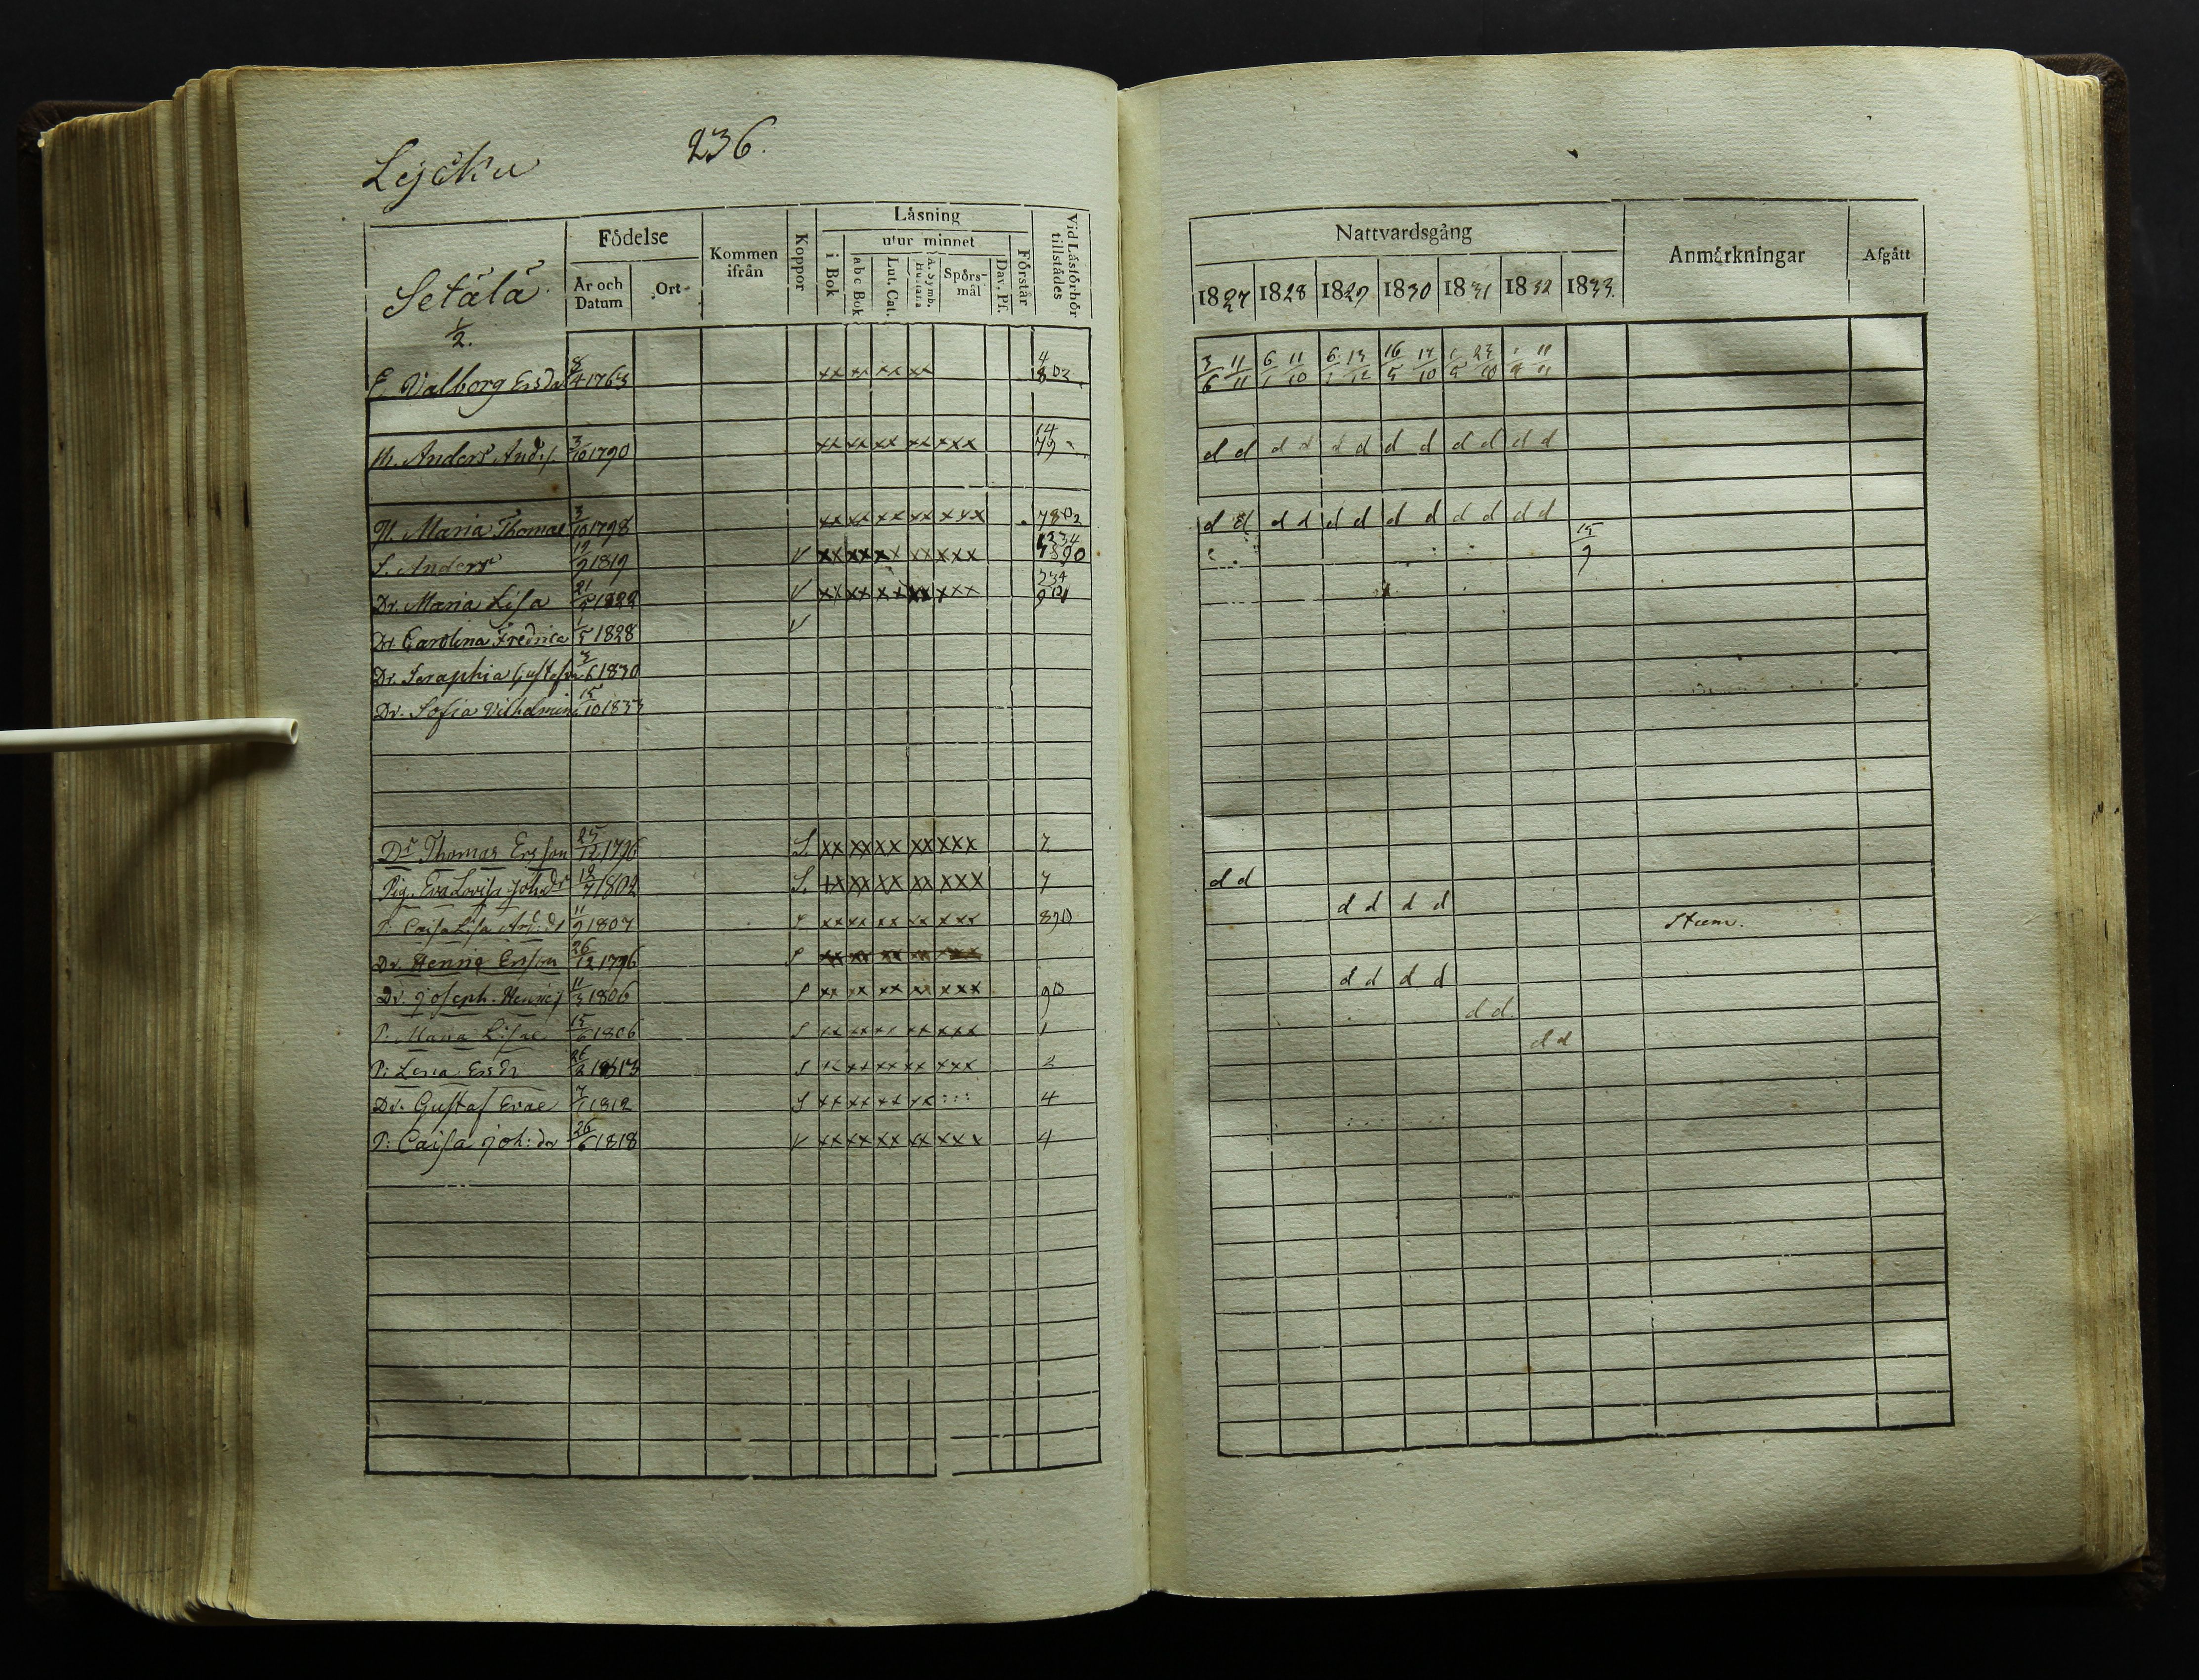 236.
Lejcku
Setälä
1/2.
Födelse
År och Datum
Ort
Kommen ifrån
Koppor
Läsning
i Bok
utur minnet
a b c Bok
Lut. Cat.
A. Symb. Hustafla
Spörs-mål
Dav. Ps.
Förstår
Vid Läsförhör tillstädes
E. Valborg Ersdr 8/4 1763 xx xx xx xx 4 803
M. Anders Andſ. 3/10 1790 xx xx xx xx xxx 14 79
H. Maria Thomae 3/10 1798 xx xx xx xx xxx 7802
S. Anders 19/9 1819 V xx xx xx xx xxx 1234 7890
Dr. Maria Liſa 21/5 1822 V xx xx xx xx xxx 234 901
Dr. Carolina Fredrica 1/5 1828 V
Dr. Seraphia Guſtafva 3/6 1830
Dr. Sofia Vilhelmina 15/10 1833
Dr Thomas Ersſon 25/12 1796 S. xx xx xx xx xxx 7
Pig. Eva Lovisa Johsdr 18/7 1802 S. xx xx xx xx xxx 7
P: Caiſa Liſa And:dr 11/9 1807 S xx xx xx xx xxx 890
Dr. Henric Ersſon 26/12 1796 S xx xx xx xx xxx
Dr. Joſeph Henricſ 11/3 1806 S xx xx xx xx xxx 90
P: Maria Liſae 15/6 1806 S xx xx xx xx xxx 1
P: Lena Ersdr 26/2 1813 S xx xx xx xx xxx 2
Dr. Guſtaf Evae 7/1 1812 S xx xx xx xx ::: 4
P: Caiſa Joh:dr 26/6 1818 V xx xx xx xx xxx 4
Nattvardsgång
Anmärkningar
Afgått
1827 1828 1829 1830 1831 1832 1833.
3/6 11/11 6/1 11/10 16/5 17/10 23/10
d d d d d d d d d d d d
d d d d d d d d d d d d
15/9
d d
d d d d
Stum.
d d d d
d d
d d